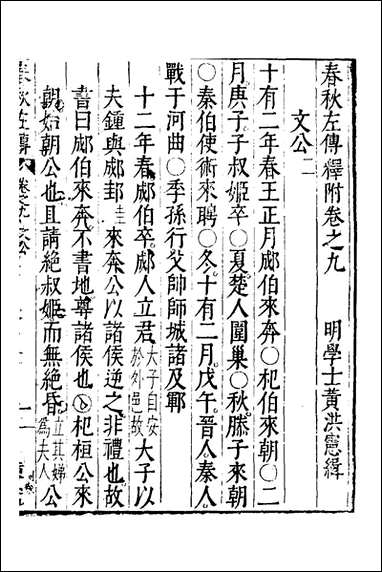 春秋左傳釋附卷之九　明學士黃洪憲緝
文公二
十有二年春王正月郕伯來奔〇杞伯來朝〇二
月庚子子叔姬卒〇夏楚人圍巢〇秋滕子來朝
〇秦伯使術來聘〇冬十有二月戊午晉人秦人
戰于河曲〇季孫行父帥師城諸及鄆
十二年春郕伯卒郕人立君大子自安於外邑故大子以
夫鍾與郕邽來奔公以諸侯逆之非禮也故
書曰郕伯來奔不書地尊諸侯也〇杞桓公來
朝始朝公也且請絕叔姬而無絕昏立其娣為夫人公
春秋左傳　卷之九　文公